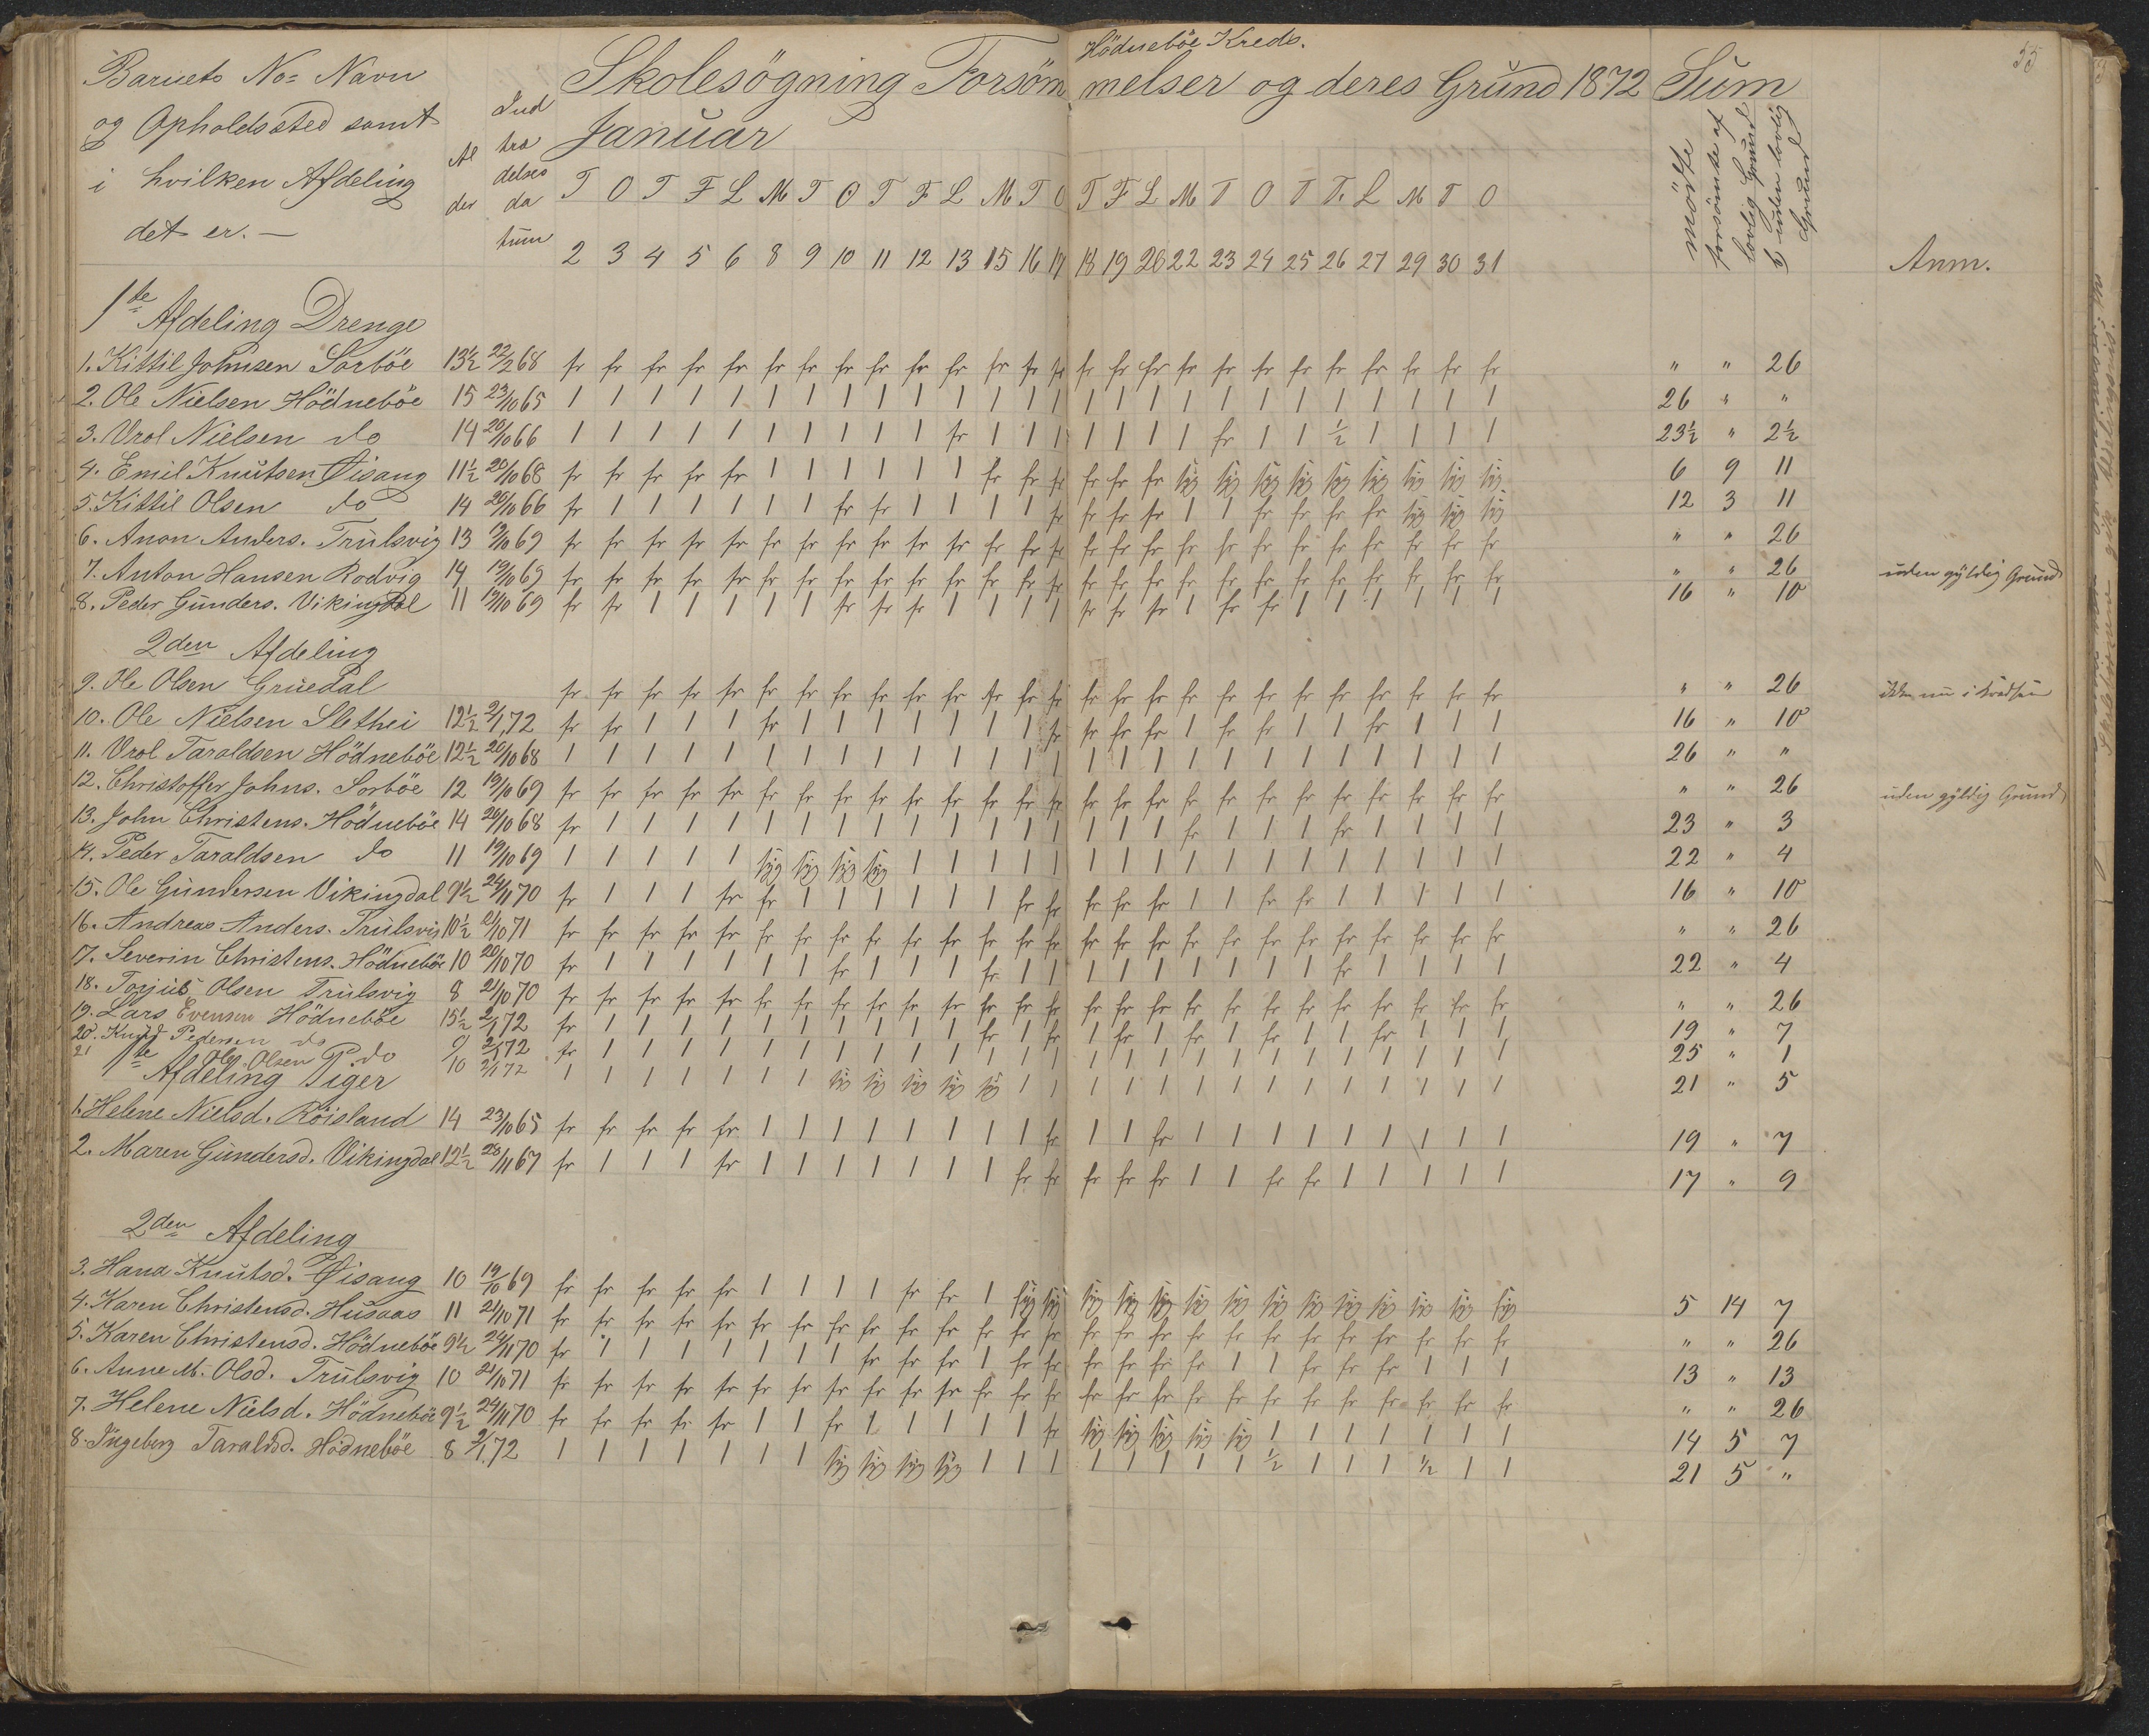 55
Hödneböe Kreds.
Barnets No= Navn
og Opholdssted samt
i hvilken Afdeling
det er. —
Al
der
Ind
træ
delses
da
tum
Skolesögning Forsöm melser og deres Grund 1872 Sum
Januar
mötte
forsömte af
lovlig Grund
uden lovlig
Grund
T O T F L M T O T F L M T O T F L M T O T F. L M T O
2 3 4 5 6 8 9 10 11 12 13 15 16 17 18 19 20 22 23 24 25 26 27 29 30 31
Anm.
1ste Afdeling Drenge
1. Kittil Johnsen Sorböe 13½ 22/2 68 fr fr fr fr fr fr fr fr fr fr fr fr fr fr fr fr fr fr fr fr fr fr fr fr fr fr " " 26
2. Ole Nielsen Hödneböe 15 23/10 65 1 1 1 1 1 1 1 1 1 1 1 1 1 1 1 1 1 1 1 1 1 1 1 1 1 1 26 " "
3. Vrol Nielsen do 14 20/10 66 1 1 1 1 1 1 1 1 1 1 fr 1 1 1 1 1 1 1 fr 1 1 ½ 1 1 1 1 23½ " 2½
4. Emil Knutsen Øisang 11½ 20/10 68 fr fr fr fr fr 1 1 1 1 1 1 fr fr fr fr fr fr syg syg syg syg syg syg syg syg syg 6 9 11
5. Kittil Olsen do 14 20/10 66 fr 1 1 1 1 1 1 fr fr 1 1 1 1 fr fr fr fr 1 1 fr fr fr fr syg syg syg 12 3 11
6. Anon Anders. Trulsvig 13 19/10 69 fr fr fr fr fr fr fr fr fr fr fr fr fr fr fr fr fr fr fr fr fr fr fr fr fr fr " " 26
7. Anton Hansen Rodvig 14 19/10 69 fr fr fr fr fr fr fr fr fr fr fr fr fr fr fr fr fr fr fr fr fr fr fr fr fr fr " " 26 uden gyldig Grund
8. Peder Gunders. Vikingdal 11 19/10 69 fr fr 1 1 1 1 1 fr fr fr 1 1 1 1 fr fr fr 1 fr fr 1 1 1 1 1 1 16 " 10
2den Afdeling
9. Ole Olsen Gruedal fr fr fr fr fr fr fr fr fr fr fr fr fr fr fr fr fr fr fr fr fr fr fr fr fr fr " " 26 ikke nu i
10. Ole Nielsen Slethei 12½ 2/1 72 fr fr 1 1 1 fr 1 1 1 1 1 1 1 fr fr fr fr 1 fr fr 1 1 fr 1 1 1 16 " 10
11. Vrol Taraldsen Hödneböe 12½ 20/10 68 1 1 1 1 1 1 1 1 1 1 1 1 1 1 1 1 1 1 1 1 1 1 1 1 1 1 26 " "
12. Christoffer Johns. Sorböe 12 19/10 69 fr fr fr fr fr fr fr fr fr fr fr fr fr fr fr fr fr fr fr fr fr fr fr fr fr fr " " 26 uden gyldig Grund
13. John Christens. Hödneböe 14 20/10 68 fr 1 1 1 1 1 1 1 1 1 1 1 1 1 1 1 1 fr 1 1 1 fr 1 1 1 1 23 " 3
14. Peder Taraldsen do 11 19/10 69 1 1 1 1 1 syg syg syg syg 1 1 1 1 1 1 1 1 1 1 1 1 1 1 1 1 1 22 " 4
15. Ole Gundersen Vikingdal 9½ 24/11 70 fr 1 1 1 fr fr 1 1 1 1 1 1 fr fr fr fr fr 1 1 fr fr 1 1 1 1 1 16 " 10
16. Andreas Anders. Trulsvig 10½ 21/10 71 fr fr fr fr fr fr fr fr fr fr fr fr fr fr fr fr fr fr fr fr fr fr fr fr fr fr " " 26
17. Severin Christens. Hödneböe 10 20/10 70 fr 1 1 1 1 1 1 fr 1 1 1 fr 1 1 1 1 1 1 1 1 1 fr 1 1 1 1 22 " 4
18. Torjus Olsen Trulsvig 8 21/10 70 fr fr fr fr fr fr fr fr fr fr fr fr fr fr fr fr fr fr fr fr fr fr fr fr fr fr " " 26
19. Lars Evensen Hödneböe 15½ 2/1 72 fr 1 1 1 1 1 1 1 1 1 1 fr 1 fr 1 fr 1 fr 1 fr 1 1 fr 1 1 1 19 " 7
20. Knud Pedersen do 9 2/1 72 fr 1 1 1 1 1 1 1 1 1 1 1 1 1 1 1 1 1 1 1 1 1 1 1 1 1 25 " 1
21 Ole Olsen do 10 2/1 72 1 1 1 1 1 1 1 syg syg syg syg syg 1 1 1 1 1 1 1 1 1 1 1 1 1 1 21 " 5
1ste Afdeling Piger
1. Helene Nielsd. Röisland 14 23/10 65 fr fr fr fr fr 1 1 1 1 1 1 1 1 fr 1 1 fr 1 1 1 1 1 1 1 1 1 19 " 7
2. Maren Gundersd. Vikingdal 12½ 28/11 67 fr 1 1 1 fr 1 1 1 1 1 1 1 fr fr fr fr fr 1 1 fr fr 1 1 1 1 1 17 " 9
2den Afdeling
3. Hana Knutsd. Øisang 10 19/10 69 fr fr fr fr fr 1 1 1 1 fr fr 1 syg syg syg syg syg syg syg syg syg syg syg syg syg syg 5 14 7
4. Karen Christensd. Husaas 11 21/10 71 fr fr fr fr fr fr fr fr fr fr fr fr fr fr fr fr fr fr fr fr fr fr fr fr fr fr " " 26
5. Karen Christensd. Hödneböe 9½ 24/11 70 fr 1 1 1 1 1 1 1 fr fr fr 1 fr fr fr fr fr fr 1 1 fr fr fr 1 1 1 13 " 13
6. Anne M. Olsd. Trulsvig 10 21/10 71 fr fr fr fr fr fr fr fr fr fr fr fr fr fr fr fr fr fr fr fr fr fr fr fr fr fr " " 26
7. Helene Nielsd. Hödneböe 9½ 24/11 70 fr fr fr fr fr 1 1 fr 1 1 1 1 1 fr syg syg syg syg syg 1 1 1 1 1 1 1 14 5 7
8. Ingeberg Taraldsd. Hödneböe 8 2/1 72 1 1 1 1 1 1 1 syg syg syg syg 1 1 1 1 1 1 1 1 ½ 1 1 1 ½ 1 1 21 5 "